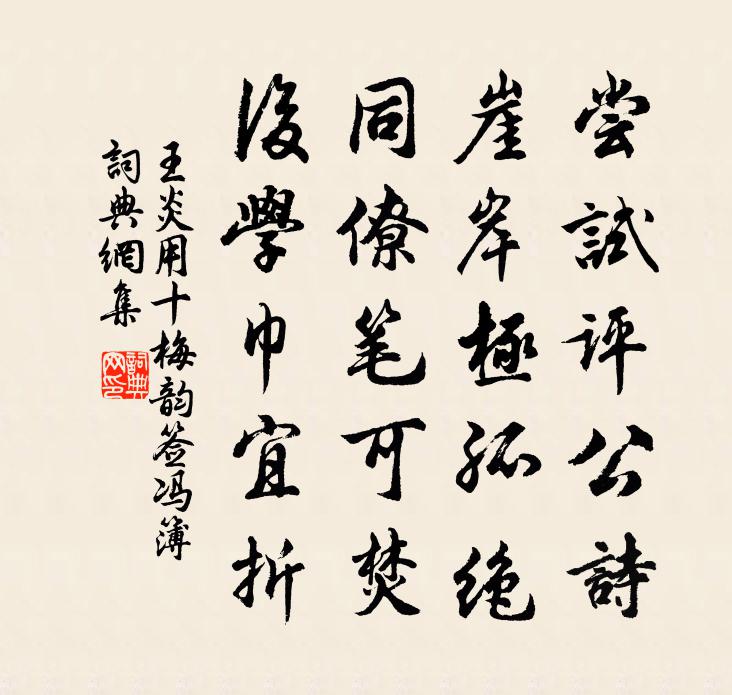 尝試评公詩
崖岸極孤绝
同僚笔可焚
後學巾宜折
王炎用十梅韵签冯簿
詞典網集
詞典网印